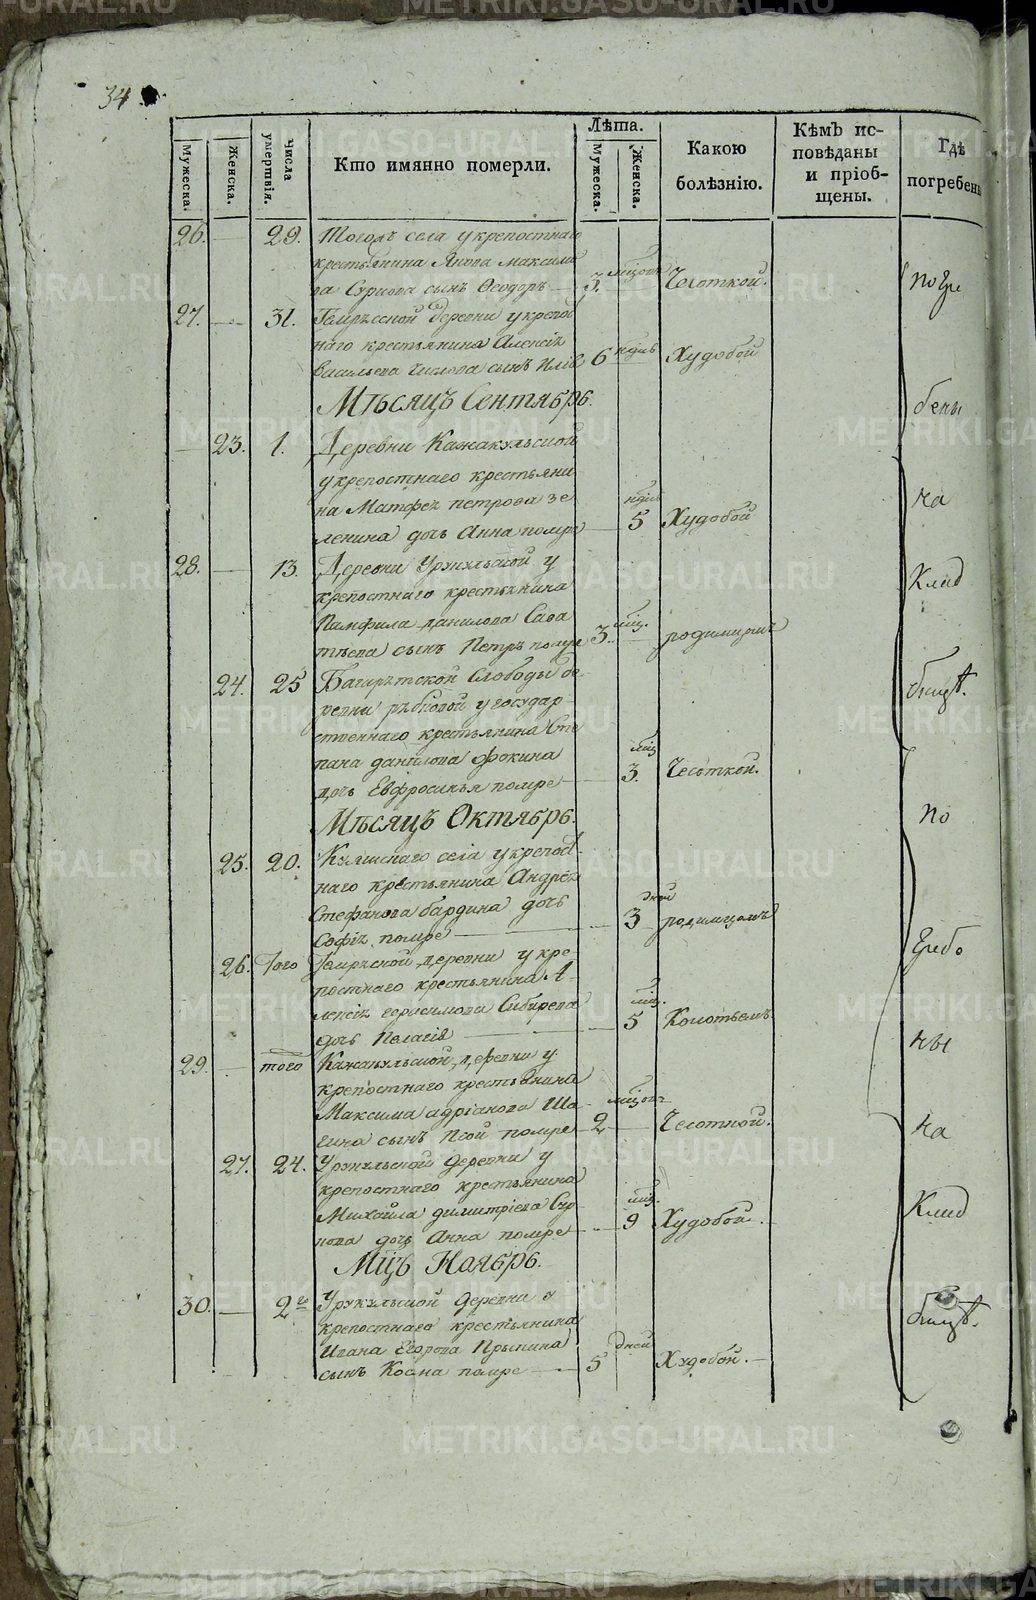 34
Мужеска.
Женска.
Числа умертвія.
Кто имянно померли.
Лѣта.
Мужеска.
Женска.
Какою болѣзнію.
Кѣмъ исповѣданы и пріобщены.
Где погребены
26. — 29. Тогожъ села укрепостнаго
крестьянина Якова Максимо
ва Сурнова сынъ Феодоръ — 3. мцовъ Чесоткой.
27. — 31. деревни укрепос
наго крестьянина Алексія
Васильева сынъ Илія 6 нділь Худобой
Мѣсяцъ Сентябрь.
— 23. 1. Деревни Кажакульской
укрепостнаго крестьяни
на Матфея петрова зе
ленина дочь Анна помре — 5 нділь Худобой
28. — 13. Деревни Урукульской у
крепостнаго крестьянина
Памфила данилова Сава
тѣева сынъ Петръ помре 3. мцъ. родимцомъ
24. 25 Багаряцкой Слободы де
ревни рыбковой у государ
ственнаго крестьянина Сте
пана данілова Фокина
дочь Евфросинья помре — 3. мцъ Чесоткой.
Мѣсяцъ Октябрь.
25. 20. села укрепост
наго крестьянина Андрея
Стефанова бардина дочь
Софія помре — 3 дней родимцомъ
26. Того деревни укре
постнаго крестьянина А
лексія герасимова Сибирева
дочь Пелагія — 5 мцъ. Колотьемъ
29. — того Кажакульской деревни у
крепостнаго крестьянина
Максима адріанова Ша
гина сынъ помре — 2 мцовъ Чесоткой.
27. 24. Урукульской деревни у
крепостнаго крестьянина
Михайла димитріева Сур
нова дочь Анна помре — 9 мцъ. Худобой.
Мцъ Ноябрь.
30. — 2го Урукульской деревни у
крепостнаго крестьянина
Ивана Егорова
сынъ Косма помре — 5 дней Худобой. —
погре
бены
на
Клад
бищѣ.
по
гребе
ны
на
Клад
бищѣ.
METRIKI.GASO-URAL.RU